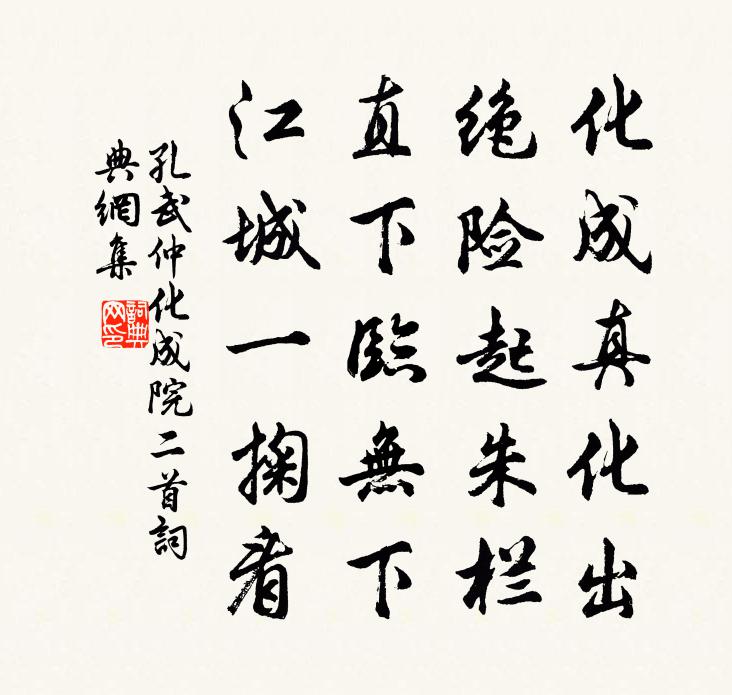 化成真化出
绝险起朱栏
直下臨無下
江城一掬看
孔武仲化成院二首詞
典網集
詞典
网印